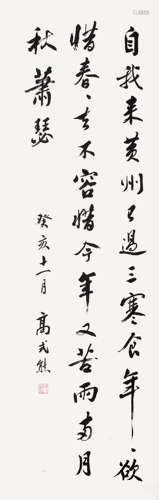 自我来黄州已過三寒食年〻欲
惜春〻去不容惜今年又苦雨两月
秋蕭瑟
癸亥十一月 高式熊